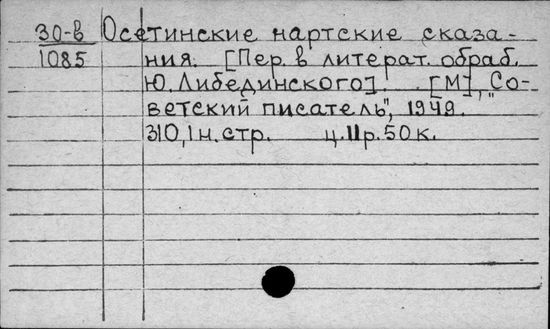 30-в Осетинские нартские сказа-
1085 ния. [Пер. в литерат. обраб.
Ю. Либединского]. [М], "Со-
ветский писатель", 1949.
310,1 н. стр. ц. 11р. 50 к.